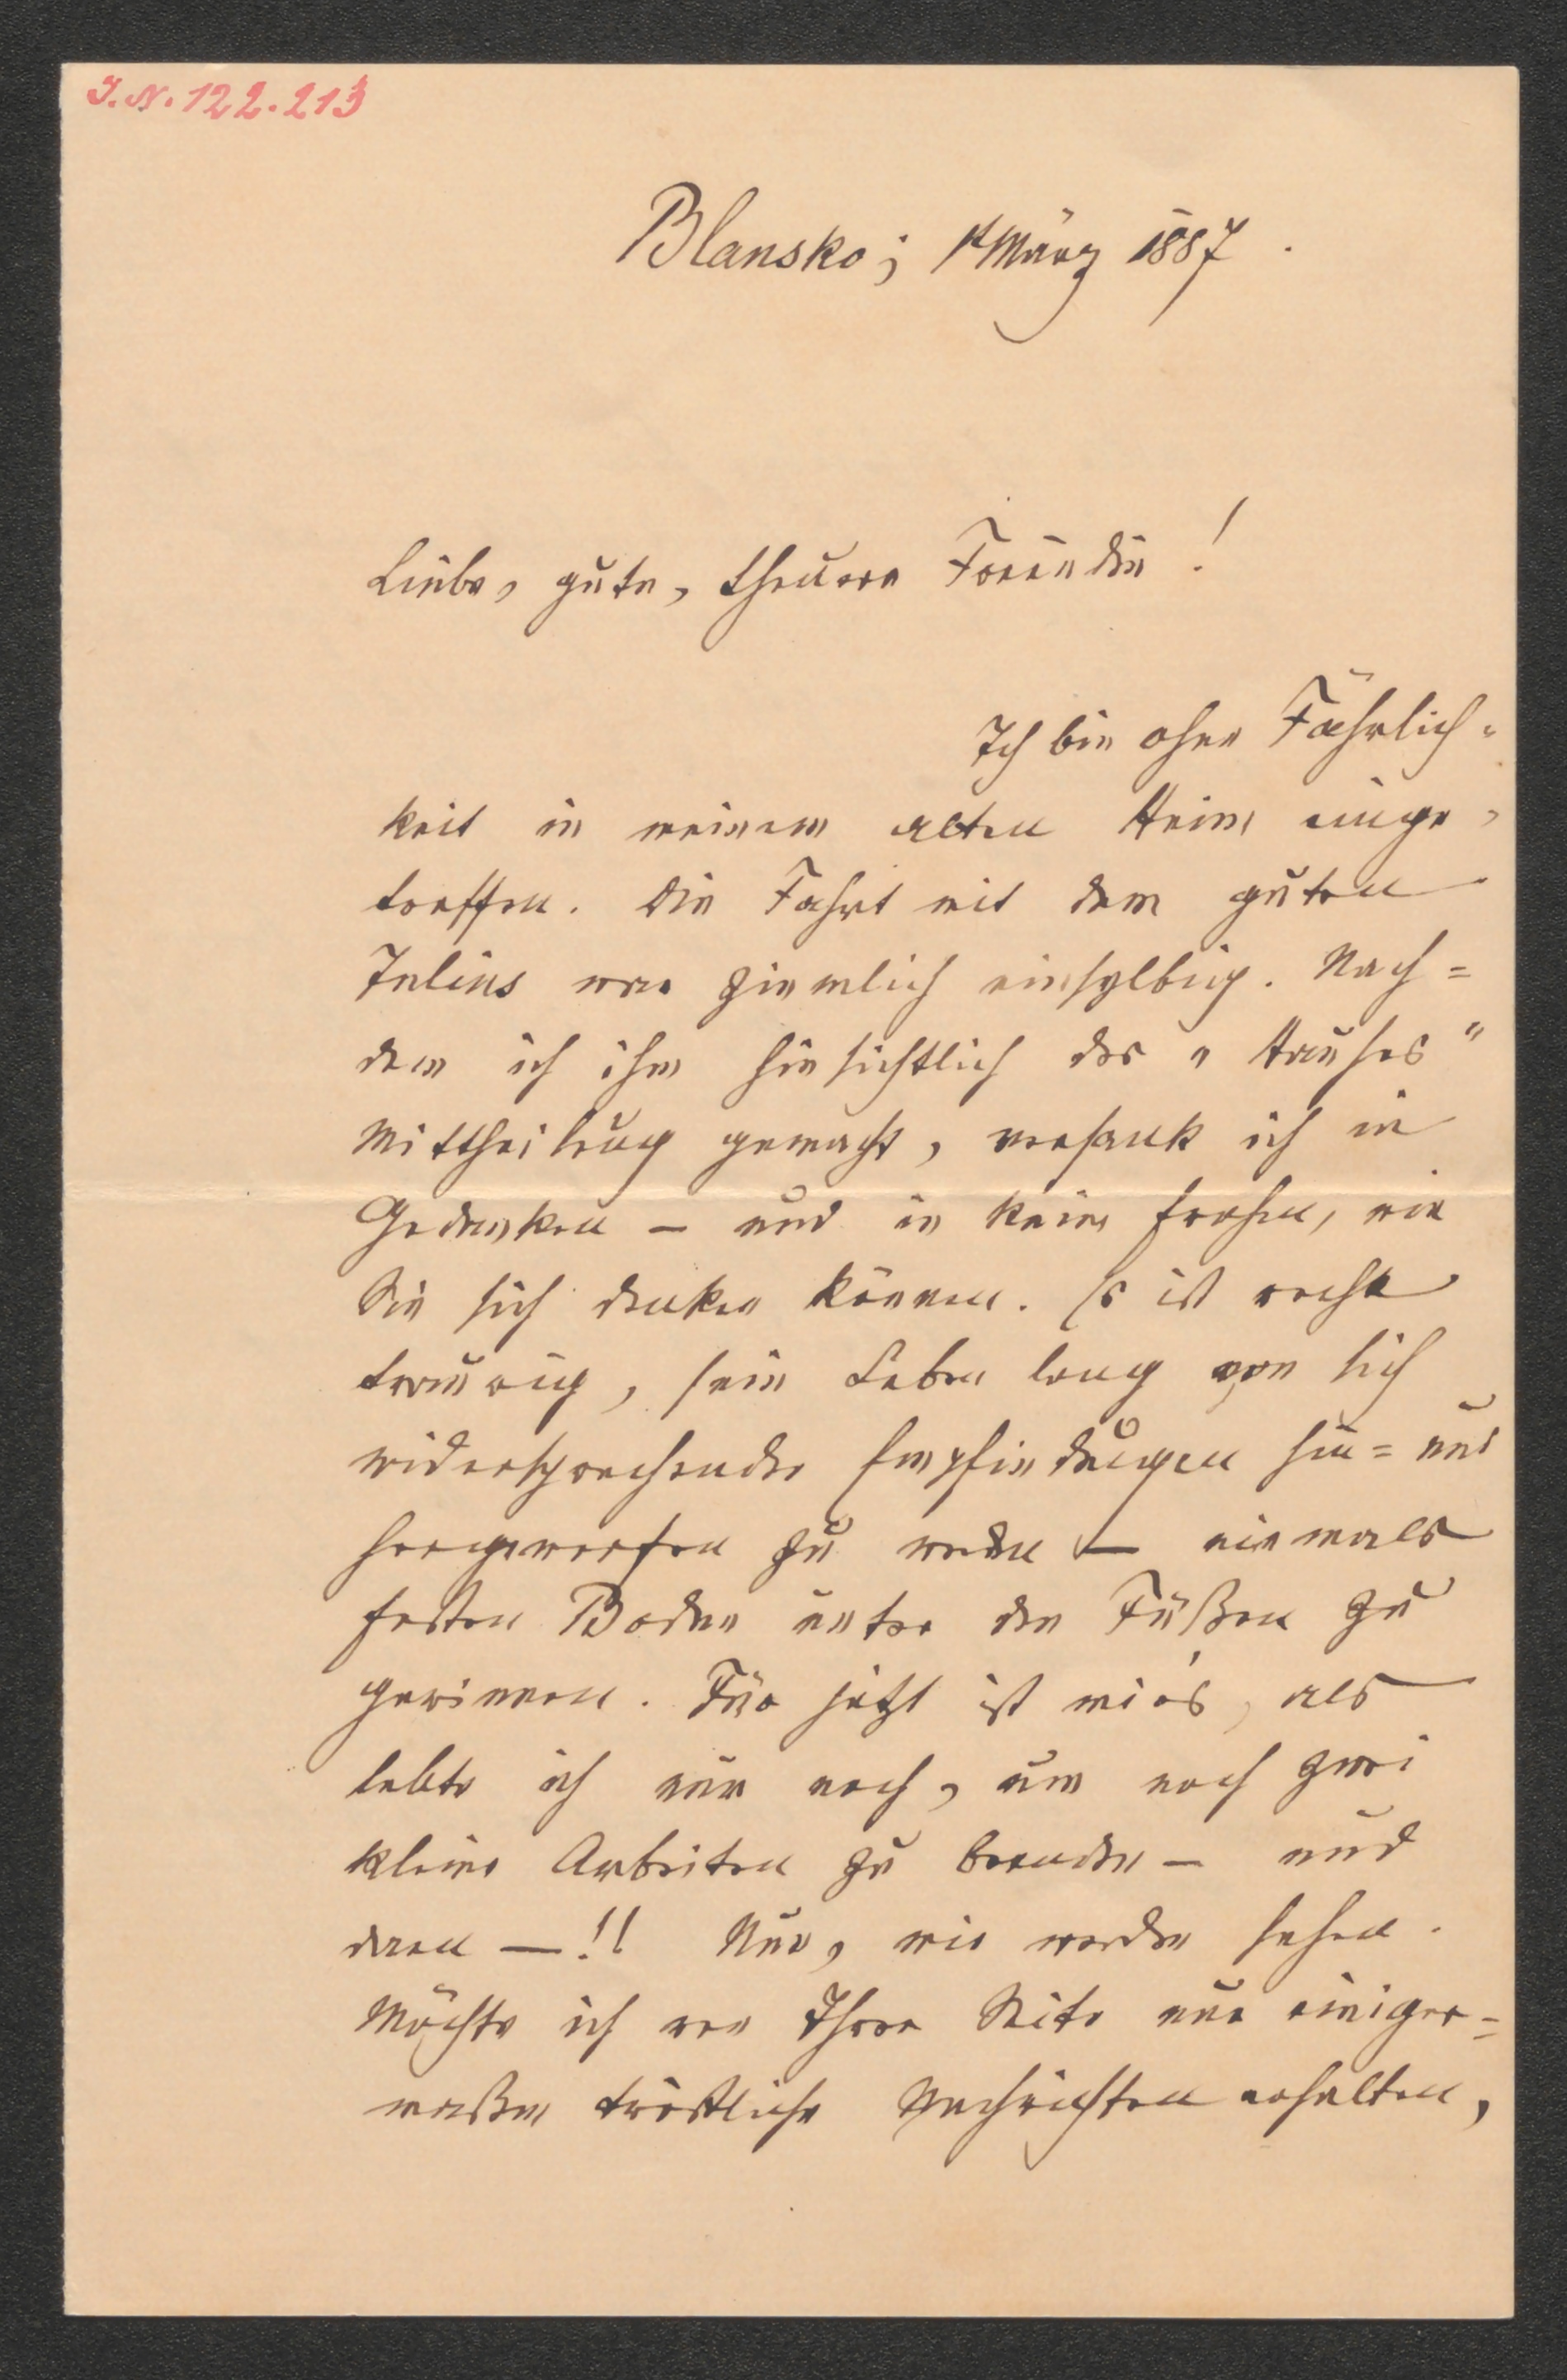 I.N. 122.213
Blansko; 1t März 1887.
Liebe, gute, theuere Freundin!
Ich bin ohne Fährlich-
keit in meinem alten Heim einge-
troffen. Die Fahrt mit dem guten
Julius war ziemlich einsylbig. Nach=
dem ich ihm hinsichtlich des „Hauses"
Mittheilung gemacht, versank ich in
Gedanken – und in keine frohen, wie
Sie sich denken können. Es ist recht
traurig, sein Leben lang von sich
widersprechender Empfindungen hin= und
hergeworfen zu werden – niemals
festen Boden unter den Füßen zu
gewinnen. Für jetzt ist mir's, als
lebte ich nur noch, um noch zwei
kleine Arbeiten zu beenden – und
dann –!! Nun, wir werden sehen.
Möchte ich von Ihrer Seite nur einiger=
maßen tröstliche Nachrichten erhalten,